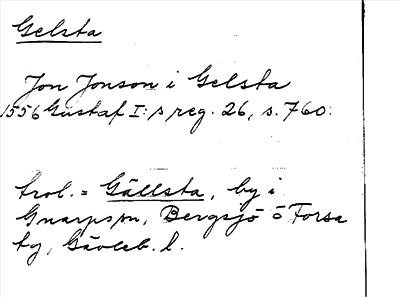 Gelsta
Jon Jonson i Gelsta
1556 Gustaf I:s reg. 26, s. 760.
trol. = Gällsta, by i
Gnarps sn, Bergsjö o Forsa
tg, Gävleb. l.